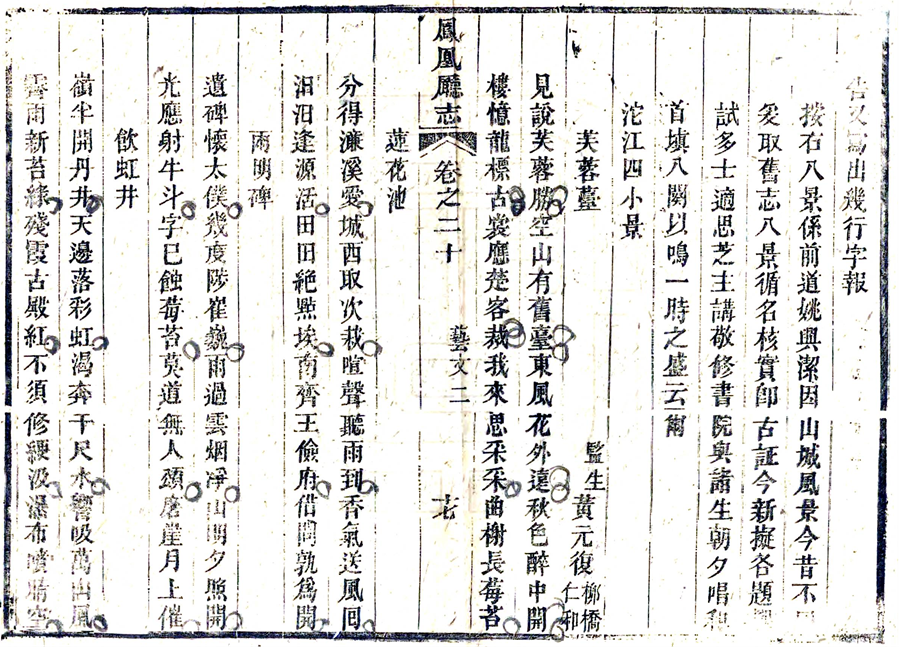 又寫出幾行字報
按右八景係前道姚興潔因山城風景今昔不
爰取舊志八景循名核實即古証今新擬各題
試多士適思芝主講敬修書院與諸生朝夕唱和
首填八闋以鳴一時之盛云爾
沱江四小景
芙蓉臺 監生黃元復柳橋仁和
見說芙蓉勝空山有舊臺東風花外遠秋色醉中開
樓憶龍標古裳應楚客裁我來思采采曲榭長莓苔
鳳凰廳志 卷之二十 藝文二 十七
蓮花池
分得濂溪愛城西取次栽喧聲聽雨到香氣送風回
汨汨逢源活田田絕點埃南齊王儉府借問孰爲開
雨明碑
遺碑懷太僕幾度陟崔巍雨過雲烟凈山開夕照開
光應射牛斗字已蝕莓苔莫道無人 磨崖月上催
飲虹井
嶺半開丹井天邊落彩虹渴奔千尺水響吸萬山風
雨新苔綠殘霞古殿紅不須修綆汲瀑布噴晴空